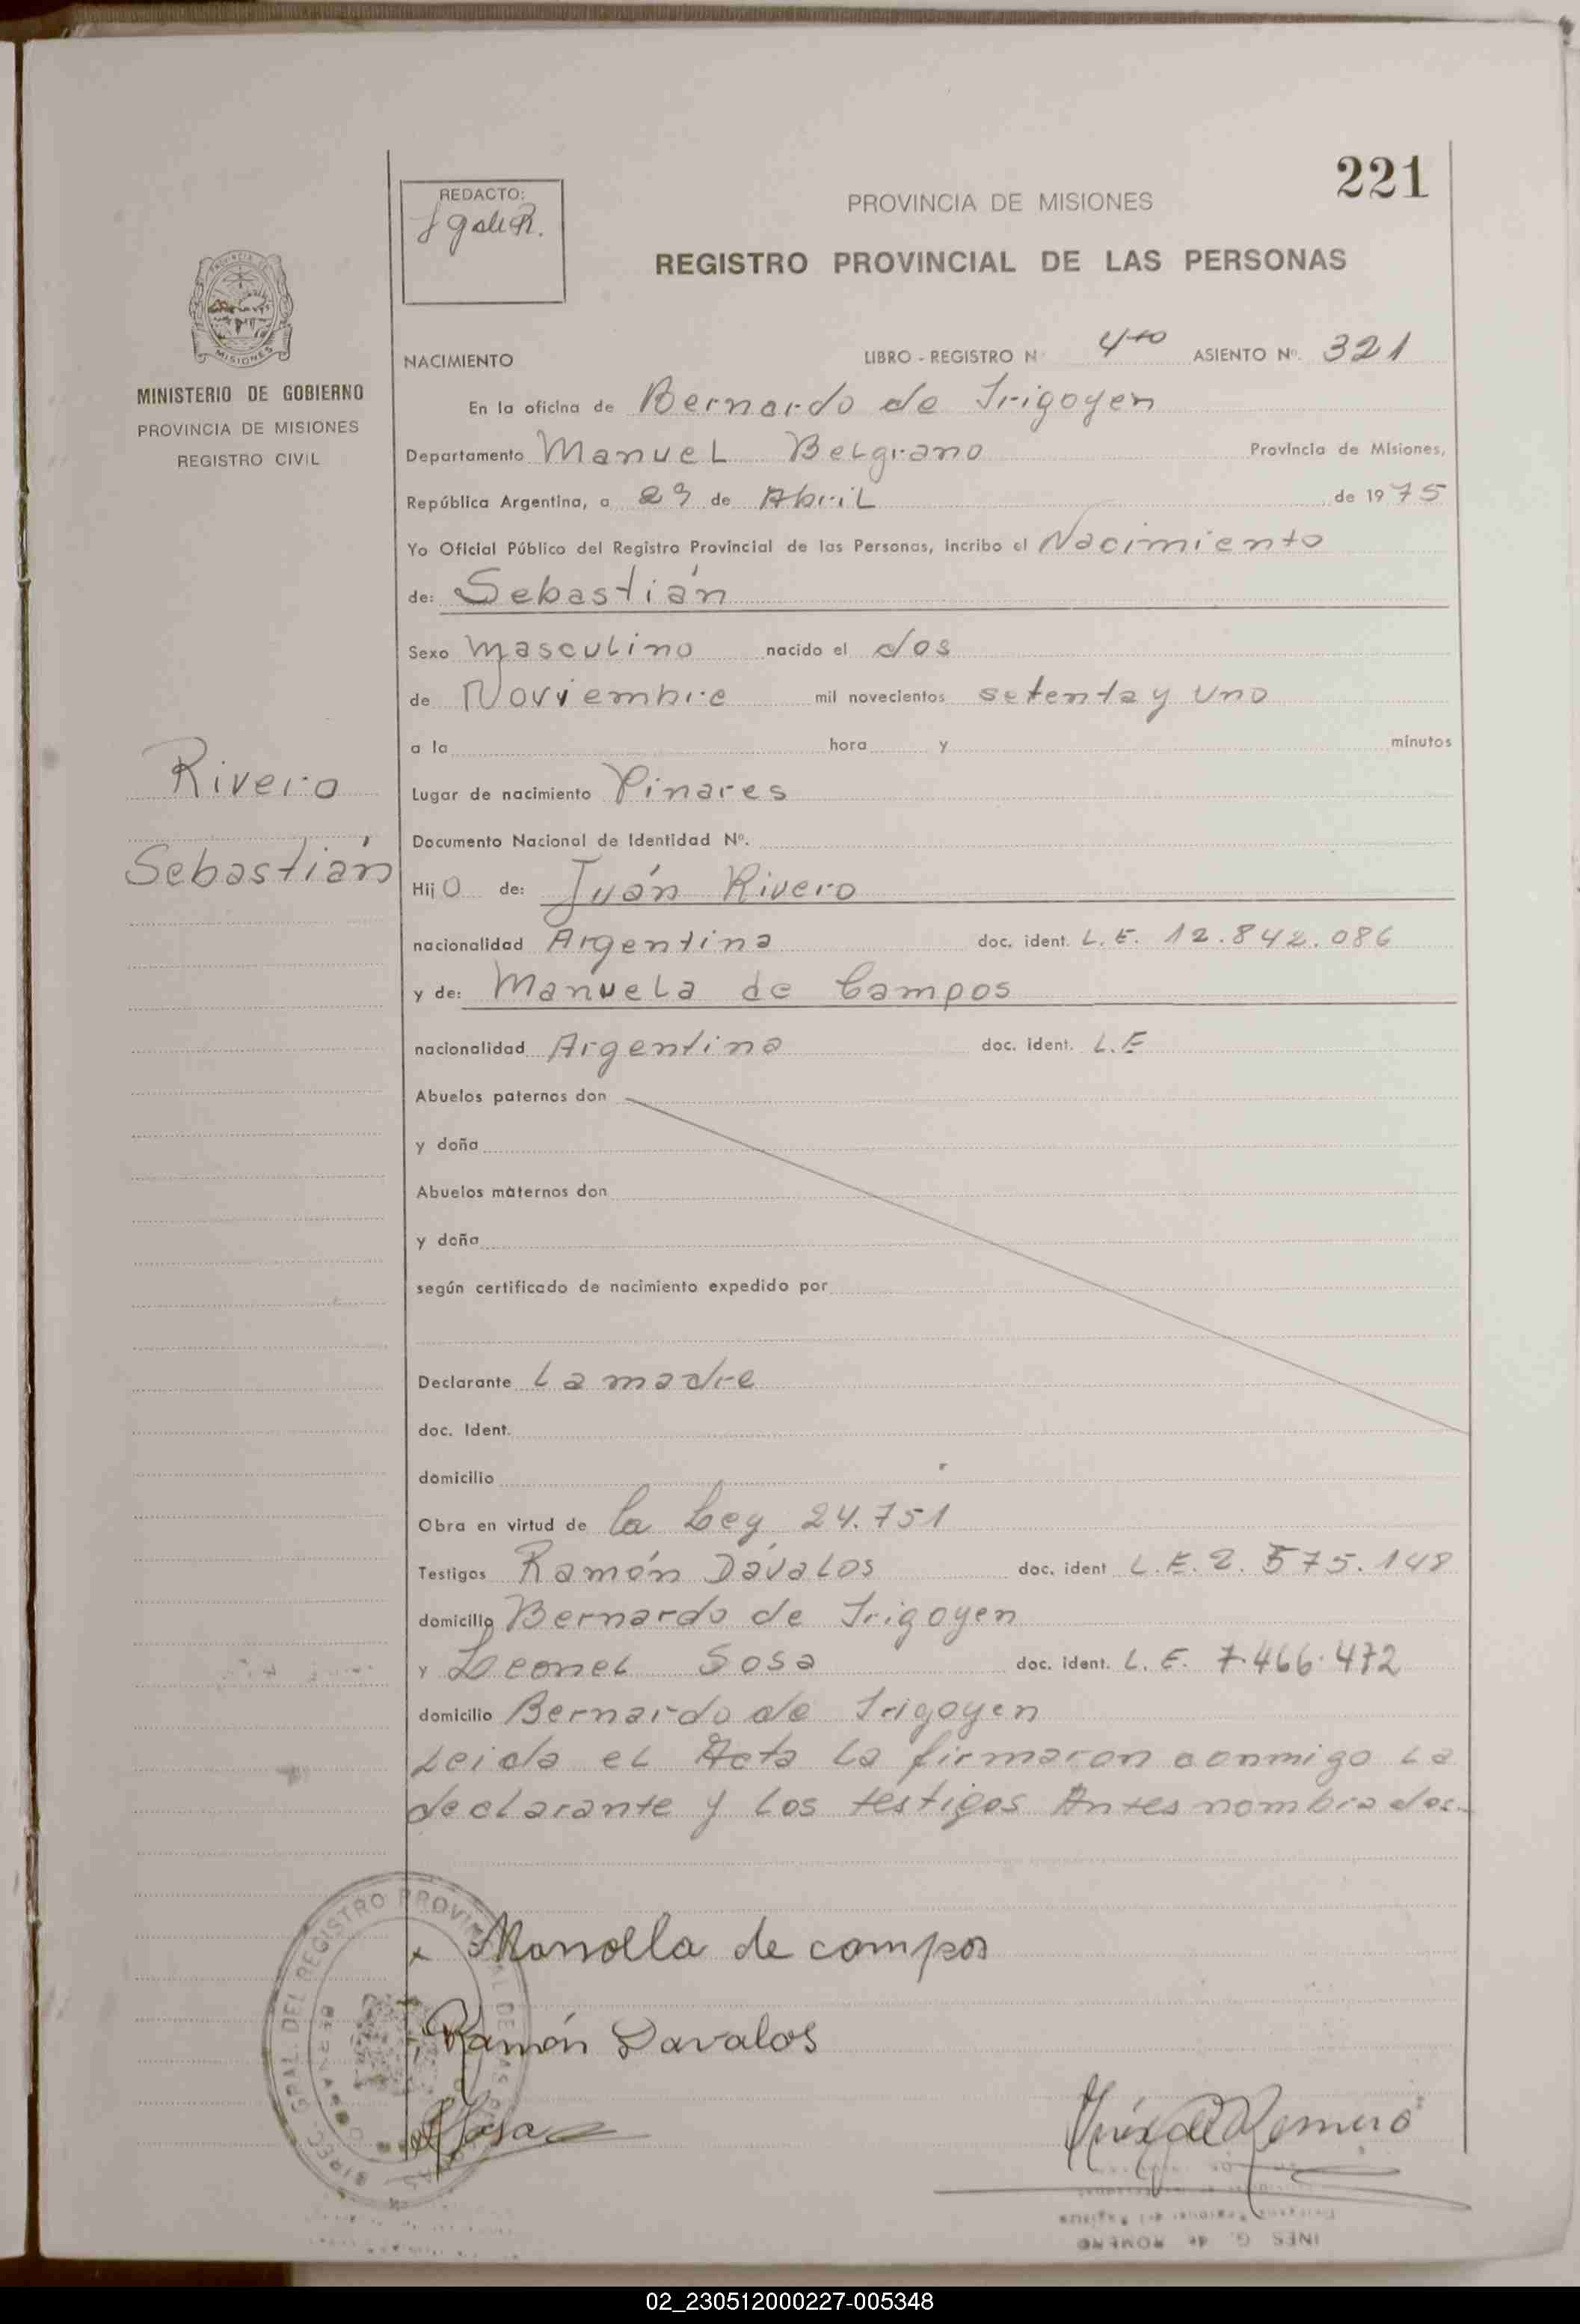 221
REDACTO:
PROVINCIA DE MISIONES
REGISTRO PROVINCIAL DE LAS PERSONAS
MISIONES
MINISTERIO DE GOBIERNO
PROVINCIA DE MISIONES
REGISTRO CIVIL
NACIMIENTO LIBRO - REGISTRO N 4to ASIENTO Nº. 321
En la oficina de Bernardo de Irigoyen
Departamento Manuel Belgrano Provincia de Misiones,
República Argentina, a 29 de Abril de 1975
Yo Oficial Público del Registro Provincial de las Personas, incribo el Nacimiento
de: Sebastián
Sexo Masculino nacido el dos
de Noviembre mil novecientos setenta y uno
a la hora y minutos
Rivero
Lugar de nacimiento Pinares
Documento Nacional de Identidad Nº.
Sebastián
Hijo de: Juán Rivero
nacionalidad Argentina doc. ident. L.E. 12.842.086
y de: Manuela de Campos
nacionalidad Argentina doc. ident. L.E
Abuelos paternos don
y doña
Abuelos maternos don
y doña
según certificado de nacimiento expedido por
Declarante La madre
doc. Ident.
domicilio
Obra en virtud de la Ley 24.751
Testigos Ramón Dávalos doc. ident L.E. 2.575.148
domicilio Bernardo de Irigoyen
y Leonel Sosa doc. ident. L.E. 7.466.472
domicilio Bernardo de Irigoyen
Leida el Acta la firmaron conmigo la
declarante y los testigos Antes nombrados.-
x Manolla de campos
Ramón Davalos
Sosa
Inés G de Romero
INES G. de ROMERO
DIREC. GRAL. DEL REGISTRO PROVINCIAL DE LAS
02_230512000227-005348